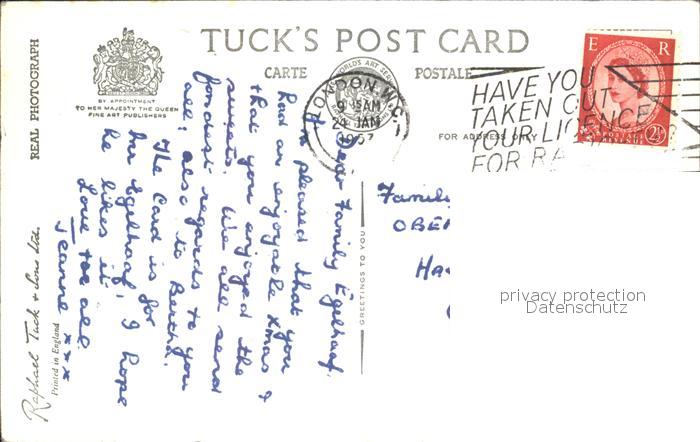 TUCK'S POST CARD
CARTE POSTALE
BY APPOINTMENT
TO HER MAJESTY THE QUEEN
FINE ART PUBLISHERS
REAL PHOTOGRAPH
LONDON. W.C.1
9 15AM
24 JAN
1957
HAVE YOU
TAKEN OUT
YOUR LICENCE
FOR RA
E R
2½
FOR ADDRESS ONLY
Dear Family Egelhaaf,
I'm pleased that you
had an enjoyable Xmas &
that you enjoyed the
sweets. We all send
fondest regards to you
all, also to Bertha.
The Card is for
her Egelhaaf, I hope
he likes it
Love to all
Jeanne xxx
GREETINGS TO YOU
Family
OBE
Ha
privacy protection
Datenschutz
Raphael Tuck & Sons Ltd.
Printed in England